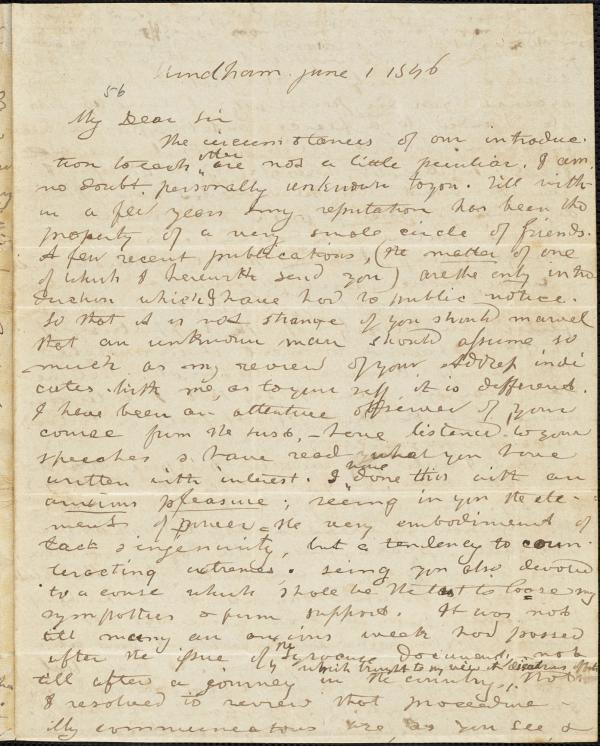 Windham June 1 1846
56
My Dear Sir
The circumstances of our introduc-
tion to each other are not a little peculiar. I am
no doubt personally unknown to you. Till with-
in a few years my reputation has been the
property of a very small circle of friends.
A few recent publications, (the matter of one
of which I herewith send you) are the only intro
duction which I have had to public notice.
So that it is not strange if you should marvel
that an unknown man should assume so
much as my review of your Address indi
cates. With me, as to your self it is different.
I have been an attentive observer of your
course from the first, – have listened to your
speeches & have read what you have
written with interest. I have done this with an
anxious pleasure; seeing in you the ele-
ments of power – the very embodiment of
tact & ingenuity, but a tendency to coun-
teracting extremes. Seeing you also devoted
to a cause which should be the last to loose my
sympathies & firm support. It was not
till many an anxious week had passed
after the issue of the Syracuse document, not
till after a journey in the country, which brought to my view
I resolved to review that proceedure
My communications are, as you see, a